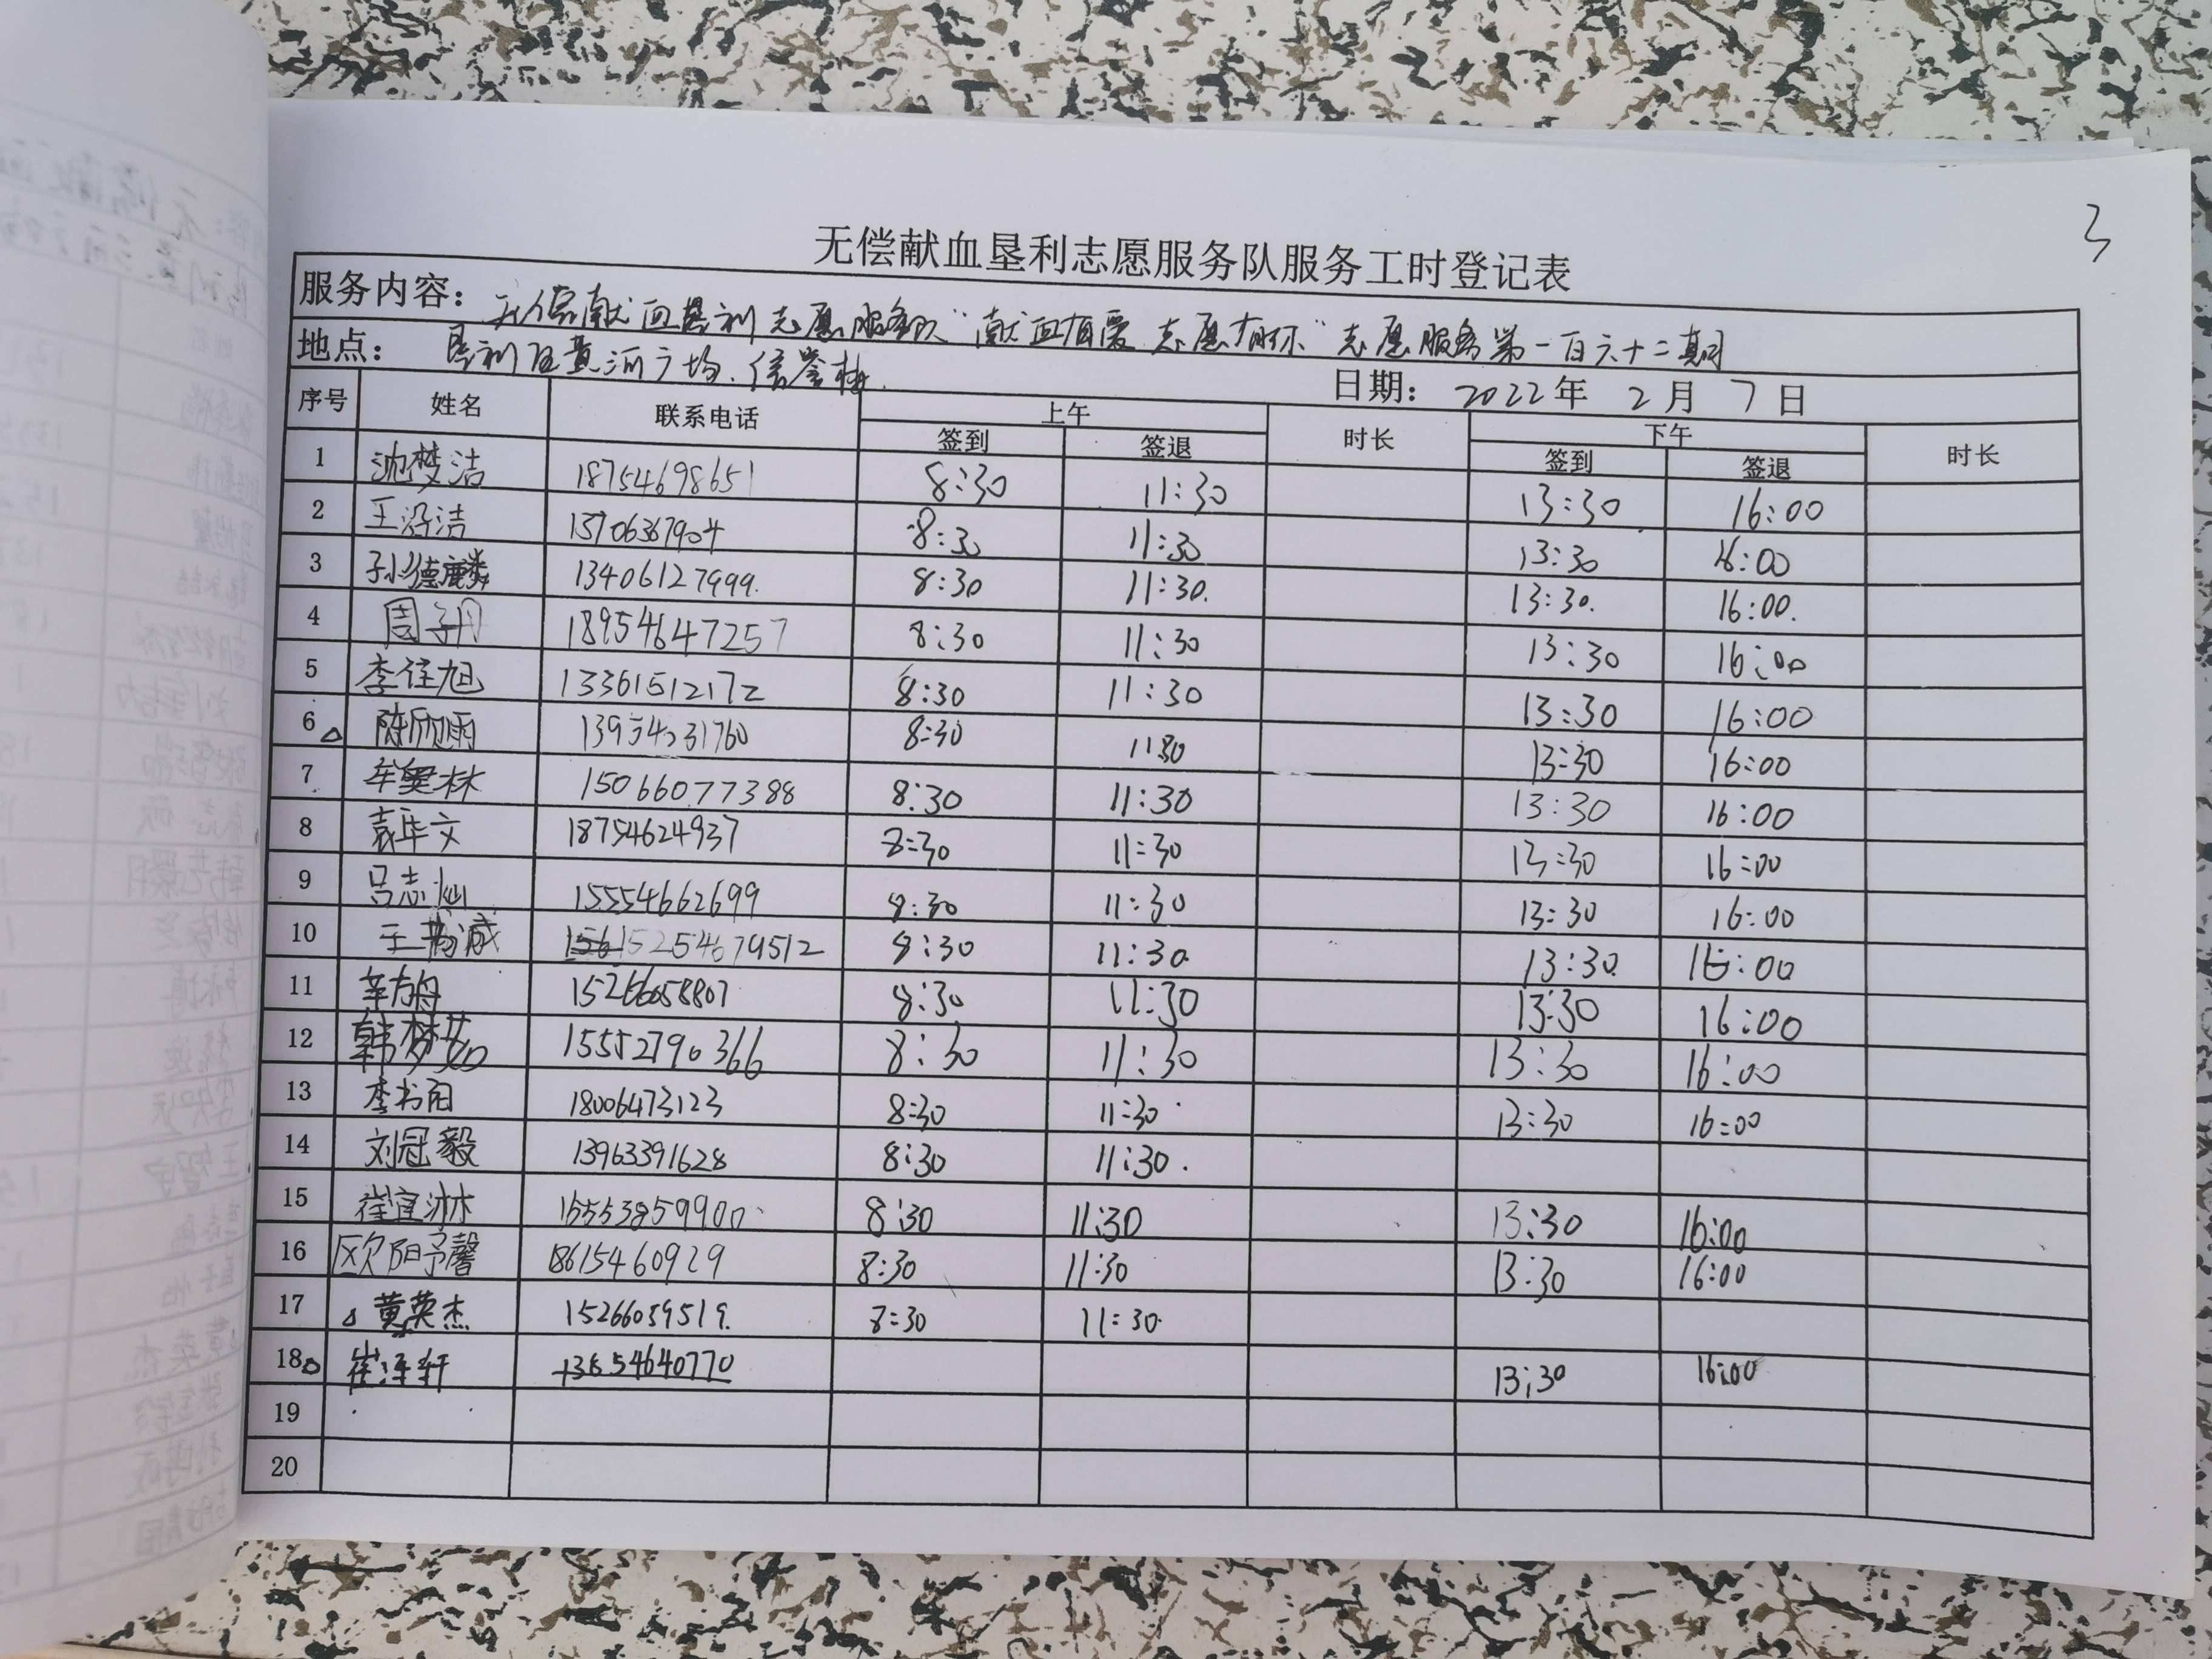 3
无偿献血垦利志愿服务队服务工时登记表
服务内容： 无偿献血垦利志愿服务队“献血有爱 志愿有你”志愿服务第一百六十二期
地点： 垦利区黄河广场、信誉楼. 日期： 2022年 2月 7日
序号 姓名 联系电话 上午 时长 下午 时长
签到 签退 签到 签退
1 沈梦洁 18754698651 8:30 11:30 13:30 16:00
2 王洺洁 13706367904 8:30 11:30 13:30 16:00
3 孙德麟 13406127999. 8:30 11:30. 13:30. 16:00.
4 周子丹 18954647257 8:30 11:30 13:30 16:00
5 李佳旭 13361512172 8:30 11:30 13:30 16:00
6 陈欣雨 8:30 11:30 13:30 16:00
7 牟奥林 15066077388 8:30 11:30 13:30 16:00
8 袁华文 18754624937 8:30 11:30 13:30 16:00
9 吕志灿 15554662699 8:30 11:30 13:30 16:00
10 王 15254679512 8:30 11:30 13:30 16:00
11 辛方舟 15266658807 8:30 11:30 13:30 16:00
12 韩梦茹 15552790366 8:30 11:30 13:30 16:00
13 李书阳 18006473123 8:30 11:30 13:30 16:00
14 刘冠毅 13963391628 8:30 11:30.
15 崔宜淋 8:30 11:30 13:30 16:00
16 欧阳予馨 18615460929 8:30 11:30 13:30 16:00
17 黄英杰 15266059519. 8:30 11:30
18 崔泽轩 13654640770 13:30 16:00
19
20